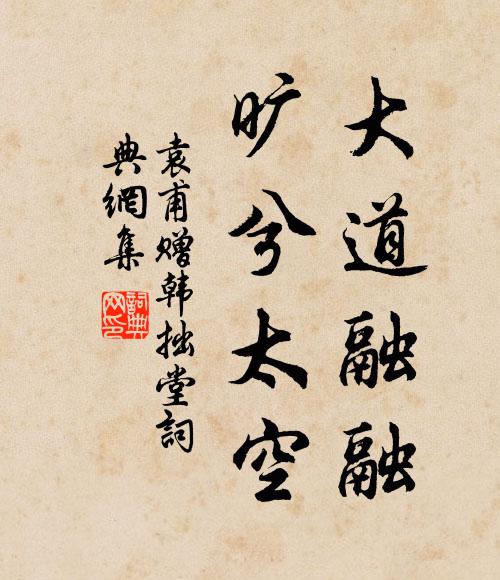 大道融融
旷兮太空
袁甫赠韩拙堂詞
典網集
詞典网印